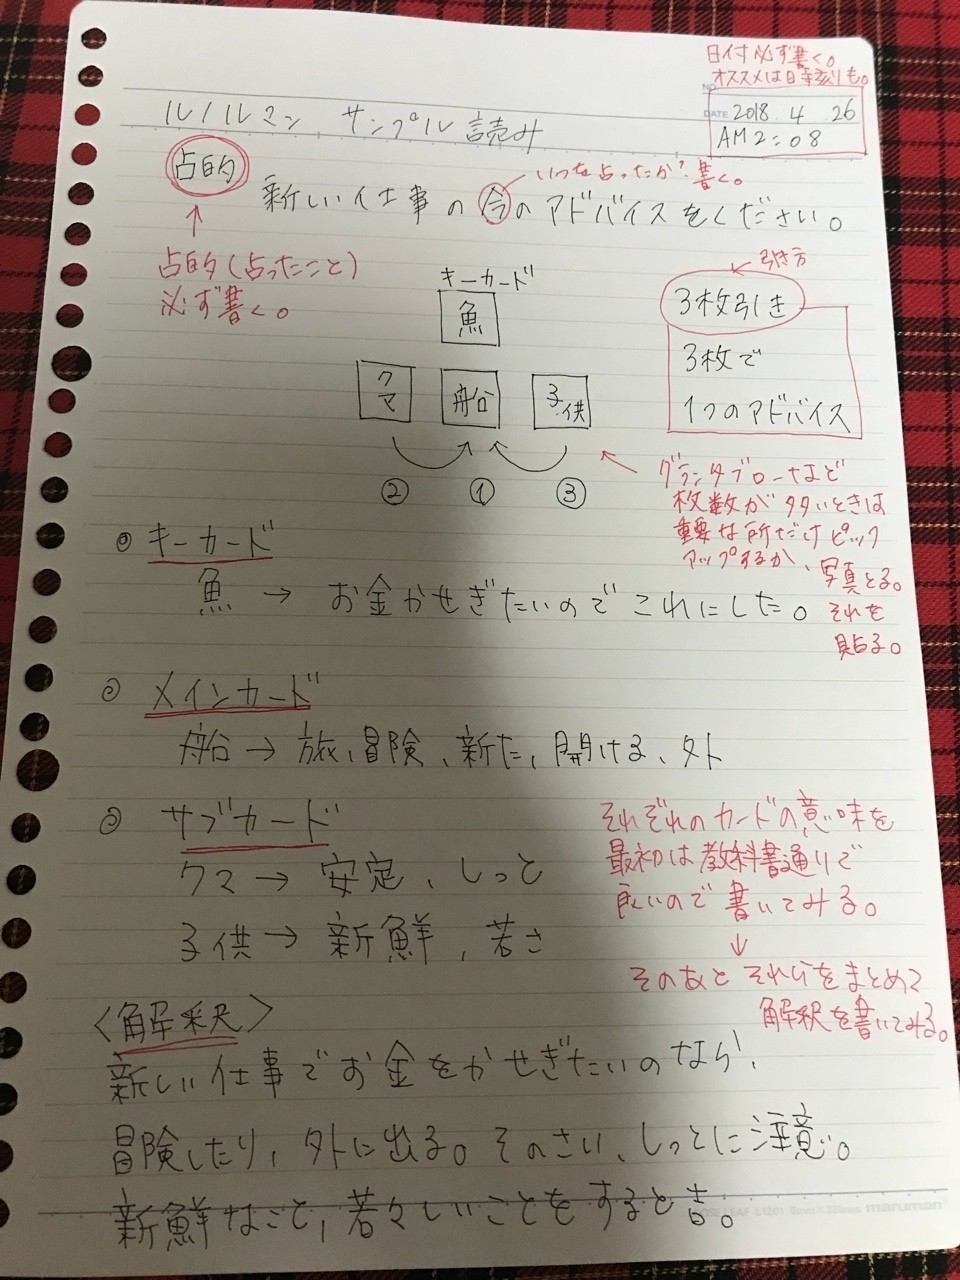 日付必ず書く。
オススメは日時刻りも。
NO.
DATE 2018 . 4 . 26
AM 2:08
ルノルマン サンプル読み
占的
いつを占ったか?書く。
新しい仕事の今のアドバイスをください。
占的(占ったこと)
必ず書く。
キーカード
魚
引き方
3枚引き
3枚で
1つのアドバイス
クマ
船
子供
② ① ③
グランタブローなど
枚数が多いときは
重要な所だけピック
アップするか、写真とる。
それを
貼る。
◎ キーカード
魚 → お金かせぎたいのでこれにした。
◎ メインカード
船 → 旅、冒険、新た、開ける、外
◎ サブカード
クマ → 安定、しっと
子供 → 新鮮、若さ
それぞれのカードの意味を
最初は教科書通りで
良いので書いてみる。
↓
そのあとそれらをまとめて
解釈を書いてみる。
〈解釈〉
新しい仕事でお金をかせぎたいのなら、
冒険したり、外に出る。そのさい、しっとに注意。
新鮮なこと、若々しいことをすると吉。
LOOSE LEAF L1201 6mm×36lines maruman